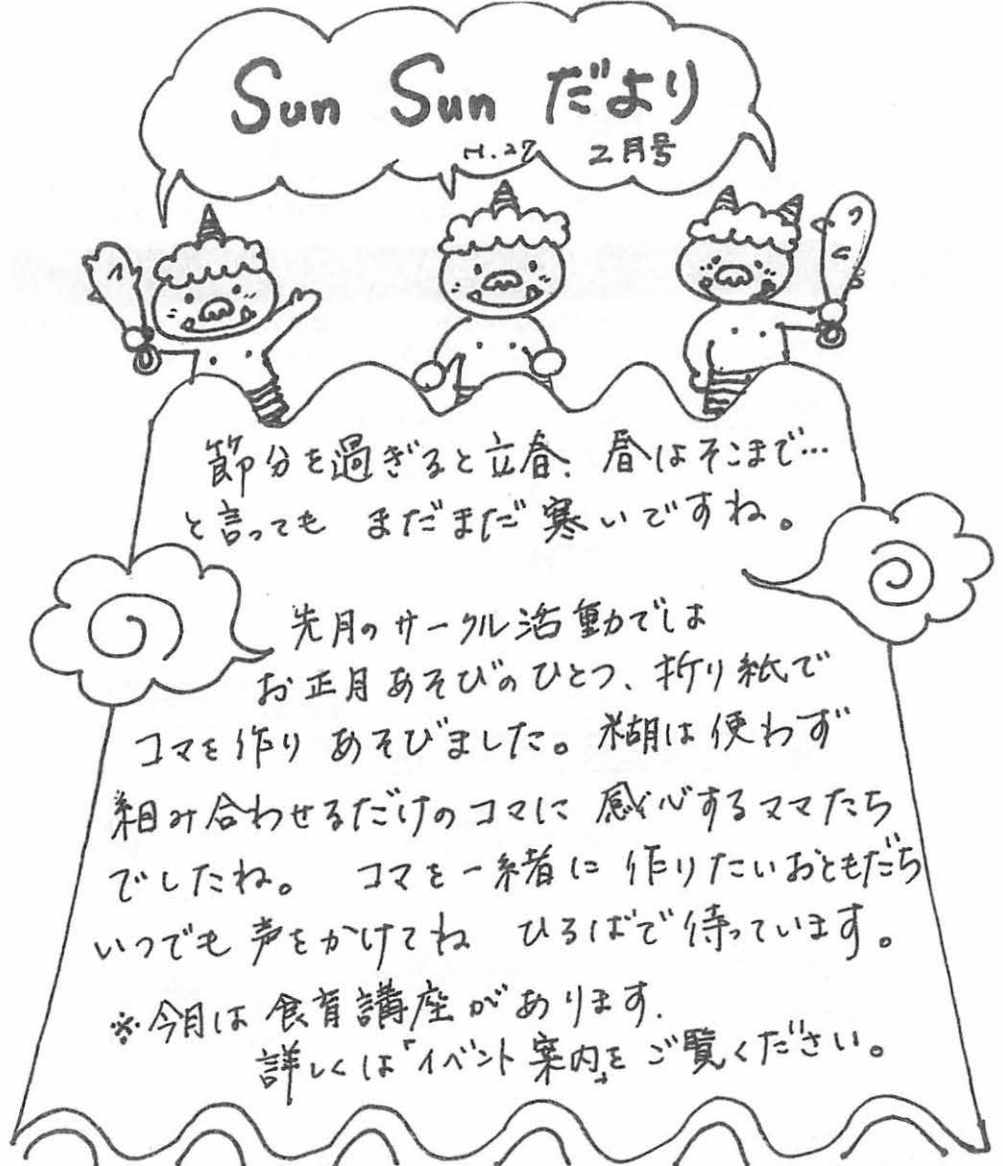 Sun Sun だより
H.27 2月号
節分を過ぎると立春、春はそこまで…
と言っても まだまだ寒いですね。
先月のサークル活動では
お正月あそびのひとつ、折り紙で
コマを作り あそびました。糊は使わず
組み合わせるだけのコマに 感心するママたち
でしたね。 コマを一緒に 作りたいおともだち
いつでも 声をかけてね ひろばで待っています。
※今月は 食育講座があります.
詳しくは「イベント案内」を ご覧ください。